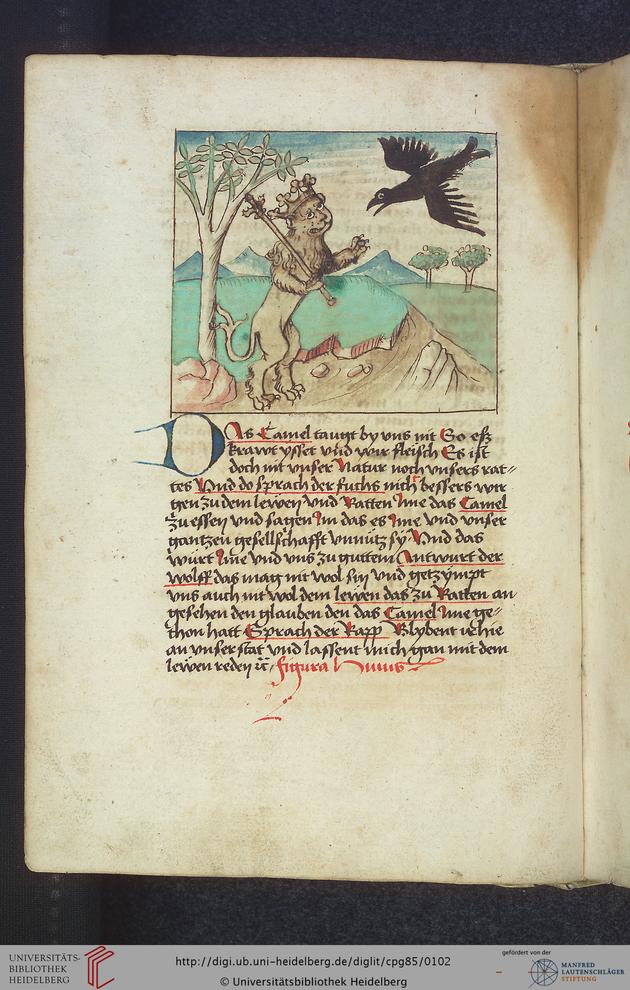 DAs Camel taugt by vns nit So esz
krawt ysset vnd wir fleisch Es ist
doch nit vnser Natur noch vnsers rat=
tes Vnd do sprach der fuchs nich bessers wir
gen zu dem lewen vnd Ratten Ime das Camel
zu essen vnd sagen Im das es Ime vnd vnser
gantzen gesellschafft vnnütz sy Vnd das
würt Ime vnd vns zu guttem Antwurt der
wolff das mag nit wol sin vnd getzympt
vns auch nit wol dem lewen das zu Ratten an
gesehen den glauben den das Camel Ime ge=
thon hatt Sprach der Rapp Blybent ir hie
an vnser stat vnd lassent mich gan mit dem
lewen reden figura huius
UNIVERSITÄTS-
BIBLIOTHEK
HEIDELBERG
http://digi.ub.uni-heidelberg.de/diglit/cpg85/0102
© Universitätsbibliothek Heidelberg
gefördert von der
MANFRED
LAUTENSCHLÄGER
STIFTUNG